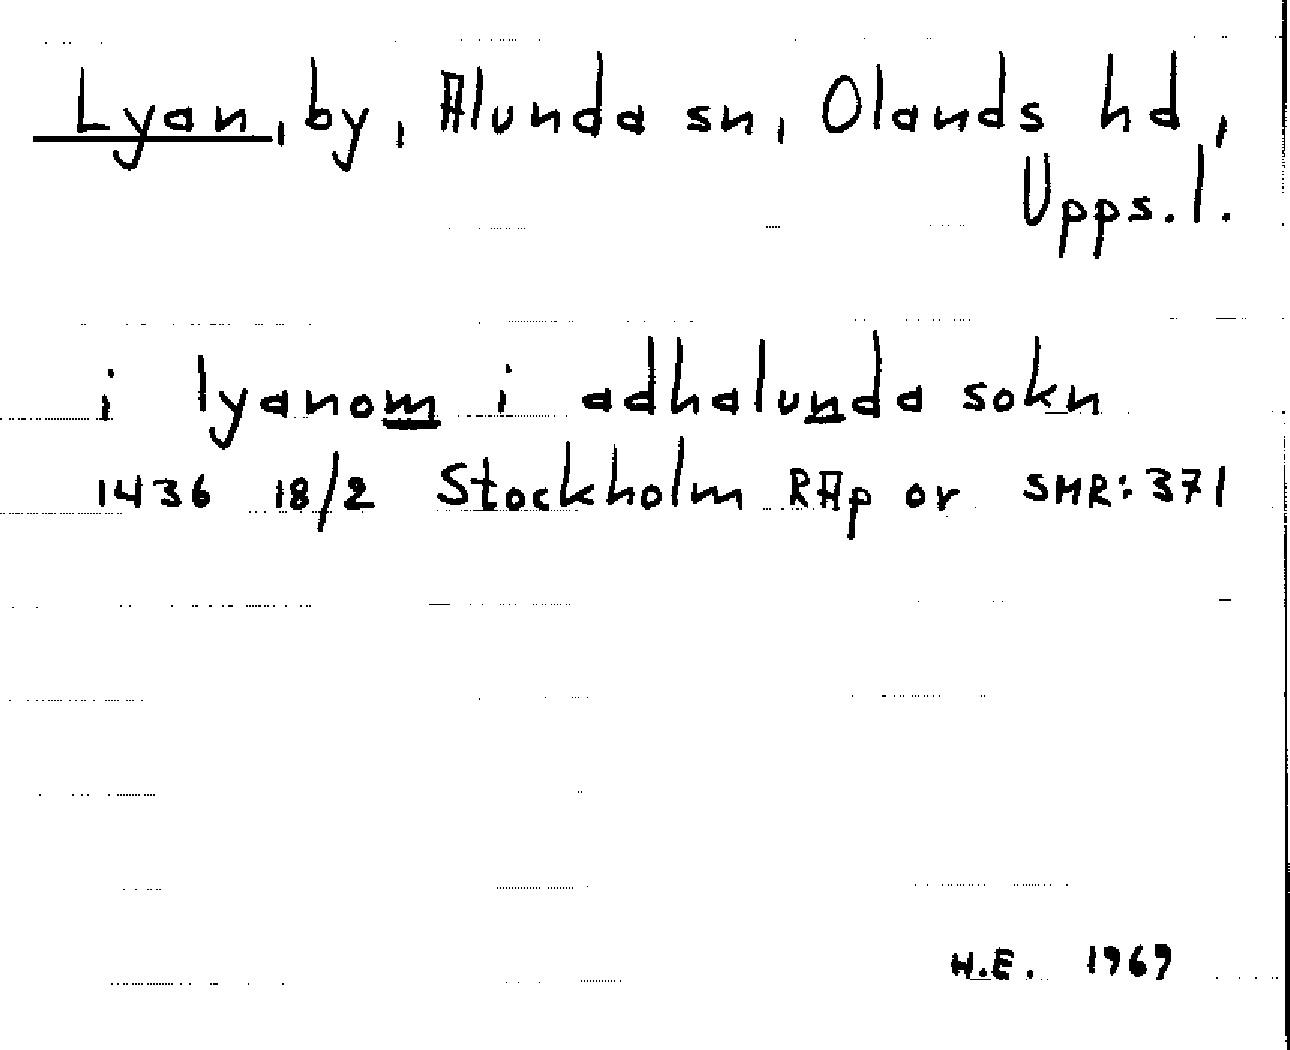 Lyan, by, Alunda sn, Olands hd,
Upps. l.
i lyanom i adhalunda sokn
1436 18/2 Stockholm RAp or SMR: 371
H.E. 1969